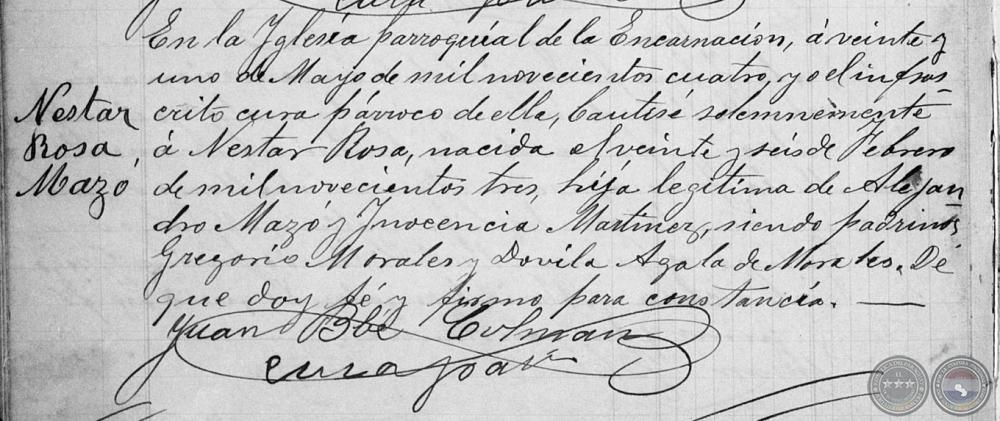 En la Yglesia parroquial de la Encarnación, á veinte y
uno de Mayo de mil novecientos cuatro, yo el infras
Nestar
crito cura párroco de ella, bautisé solemnemente
Rosa,
á Nestar Rosa, nacida el veinte y seis de Febrero
Mazó
de mil novecientos tres, hija legítima de Alejan
dro Mazó y Ynocencia Martinez, siendo padrinos
Gregorio Morales y Dovila Agala de Morales. De
que doy fé y firmo para constancia.
Juan Bbé Colman
cura